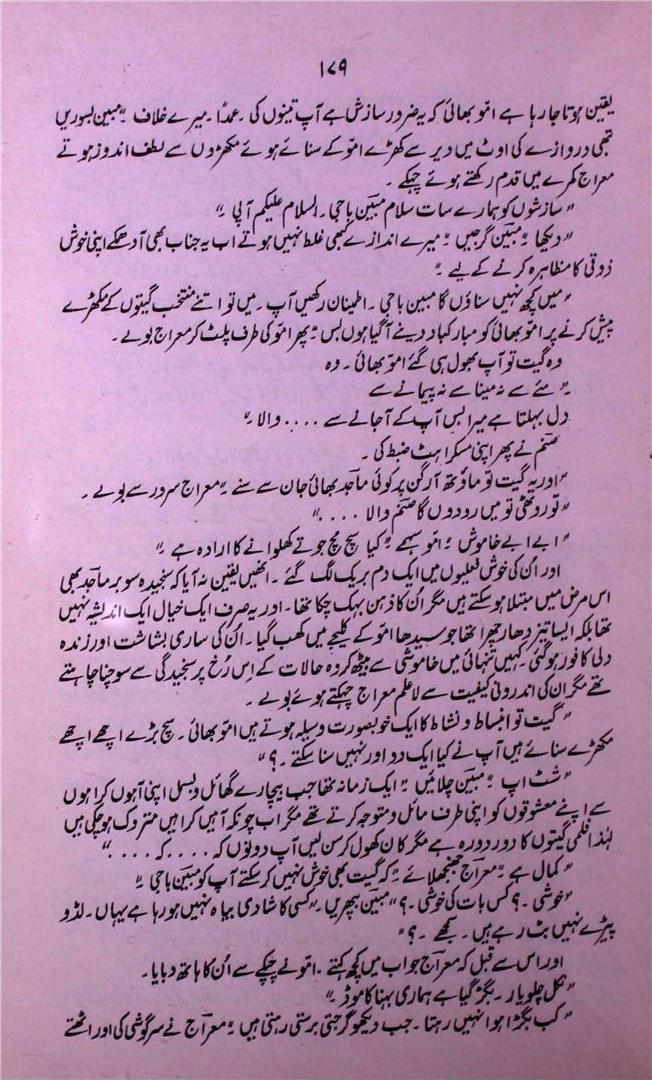 ۱۷۹
یقین ہوتا جا رہا ہے امّو بھائی کہ یہ ضرور سازش ہے آپ تینوں کی۔ عمداً۔ میرے خلاف ؛ مبین بسوریں
تبھی دروازے کی اوٹ میں دیر سے کھڑے امّو کے سنائے ہوئے مکھڑوں سے لطف اندوز ہوتے
معراج کمرے میں قدم رکھتے ہوئے چہکے۔
"سازشوں کو ہمارے سات سلام مبین باجی۔ السلام علیکم آپی ؛"
"دیکھا ؛ مبین گرجیں ؛ میرے اندازے کبھی غلط نہیں ہوتے اب یہ جناب بھی آدھمکے اپنی خوش
ذوقی کا مظاہرہ کرنے کے لیے ؛"
"میں کچھ نہیں سناؤں گا مبین باجی۔ اطمینان رکھیں آپ۔ میں تو اتنے منتخب گیتوں کے مکھڑے
پیش کرنے پر امّو بھائی کو مبارکباد دینے آگیا ہوں بس ؛ پھر امّو کی طرف پلٹ کر معراج بولے۔
وہ گیت تو آپ بھول ہی گئے امّو بھائی۔ وہ
؛"مئے سے نہ مینا سے نہ پیمانے سے
دل بہلتا ہے میرا بس آپ کے آجانے سے .... والا ؛"
صنم نے پھر اپنی مسکراہٹ ضبط کی۔
"اور یہ گیت تو ماؤتھ آرگن پر کوئی ماجد بھائی جان سے سنے ؛ معراج سرور سے بولے۔
"تو روٹھی تو میں رودوں گا صنم والا ...."
"ابے ابے خاموش ؛ امّو سہمے ؛ کیا سچ مچ جوتے کھلوانے کا ارادہ ہے ؛"
اور ان کی خوش فعلیوں میں ایک دم بریک لگ گئے۔ انھیں یقین نہ آیا کہ سنجیدہ سوبر ماجد بھی
اس مرض میں مبتلا ہو سکتے ہیں مگر اُن کا ذہن بہک چکا تھا۔ اور یہ صرف ایک خیال ایک اندیشہ نہیں
تھا بلکہ ایسا تیز دھار چھرا تھا جو سیدھا امّو کے کلیجے میں کھب گیا۔ اُن کی ساری بشاشت اور زندہ
دلی کافور ہو گئی۔ کہیں تنہائی میں خاموشی سے بیٹھ کر وہ حالات کے اِس رُخ پر سنجیدگی سے سوچنا چاہتے
تھے مگر ان کی اندرونی کیفیت سے لاعلم معراج چہکتے ہوئے بولے۔
"گیت تو انبساط و نشاط کا ایک خوبصورت وسیلہ ہوتے ہیں امّو بھائی۔ سچ بڑے اچھے اچھے
مکھڑے سنائے ہیں آپ نے کیا ایک دو اور نہیں سنا سکتے۔ ؟"
"شٹ اپ ؛ مبین چلائیں ؛ ایک زمانہ تھا جب بیچارے گھائل و بسمل اپنی آہوں کراہوں
سے اپنے معشوقوں کو اپنی طرف مائل و متوجہ کرتے تھے مگر اب چونکہ آہیں کراہیں متروک ہو چکی ہیں
لہٰذا فلمی گیتوں کا دور دورہ ہے مگر کان کھول کر سن لیں آپ دونوں کہ .... کہ ...."
"کمال ہے ؛ معراج جھنجھلائے ؛ کہ گیت بھی خوش نہیں کر سکتے آپ کو مبین باجی ؛"
"خوشی۔ ؟ کس بات کی خوشی۔ ؟" مبین بپھریں۔ "کسی کا شادی بیاہ نہیں ہو رہا ہے یہاں۔ لڈو
پیڑے نہیں بٹ رہے ہیں۔ سمجھے۔ ؟"
اور اس سے قبل کہ معراج جواب میں کچھ کہتے۔ امّو نے چپکے سے اُن کا ہاتھ دبایا۔
"نکل چلو یار۔ بگڑ گیا ہے ہماری بہنا کا موڈ ؛"
"کب بگڑا ہوا نہیں رہتا۔ جب دیکھو گرجتی برستی رہتی ہیں ؛ معراج نے سرگوشی کی اور اٹھتے